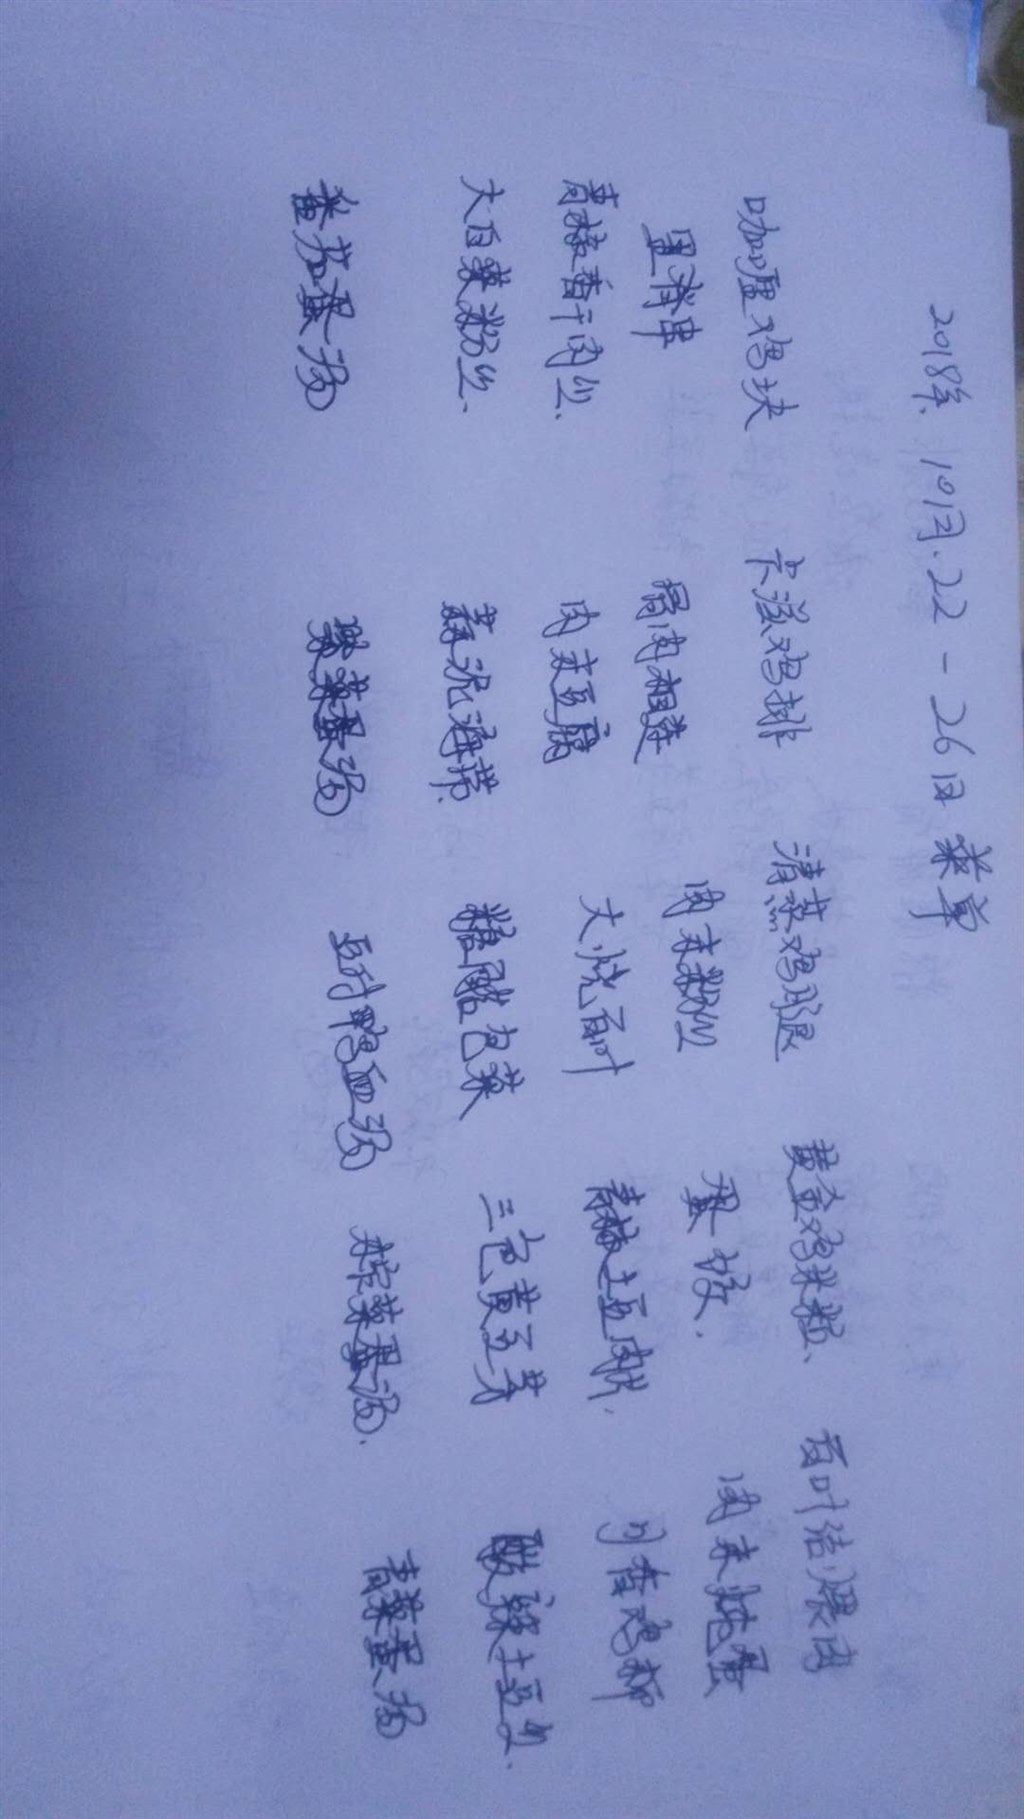 2018年.10月.22-26日 菜单
咖喱鸡块 卡滋鸡排 清蒸鸡腿 黄金鸡米粒、 百叶结煨肉
里脊串 骨肉相连 肉末粉丝 蛋饺. 肉末炖蛋
青椒香干肉丝. 肉末豆腐 大烧百叶 青椒土豆肉片. 川香鸡柳
大白菜粉丝. 蒜泥海带. 糖醋包菜 三色黄豆芽 酸辣土豆丝.
番茄蛋汤 紫菜蛋汤 鸭血汤 榨菜蛋汤. 青菜蛋汤